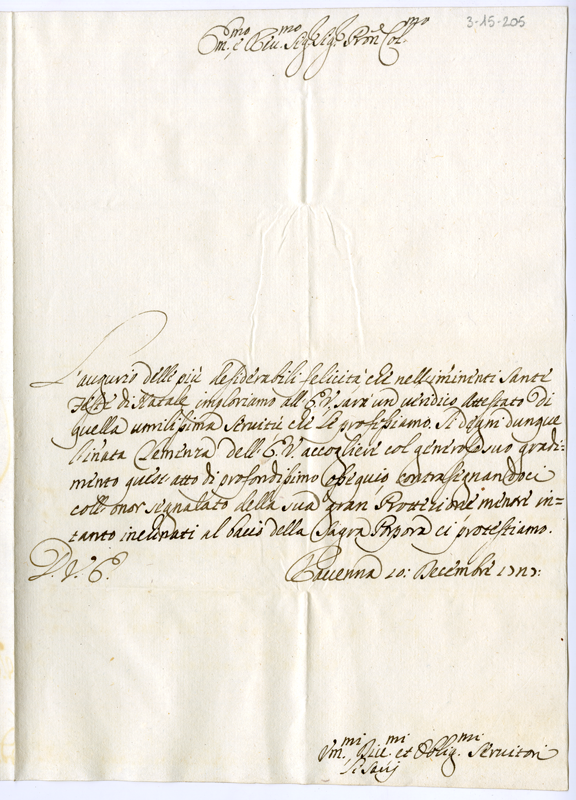 3-15-205
Em.mo e Reu.mo Sig.r Sig.r Pron Col.mo
L'augurio delle più desiderabili felicità che nell'iminenti Sante
Feste di Natale imploriamo all'E.V. sarà un veridico Attestato di
quella umilissima seruitù che Le professiamo. Si degni dunque
l'inata Clemenza dell'E.V. accogliere col generoso suo gradi=
mento quest'atto di profondissimo ossequio contrasegnandoci
coll'onor segnalato della sua gran Prottezione mentre in=
tanto inclinati al bacio della Sagra Porpora ci protestiamo.
D.V.E.
Rauenna 20: Decembre 1727:
Vm.mi Diu.mi et Oblig.mi Seruitori
li Sauij